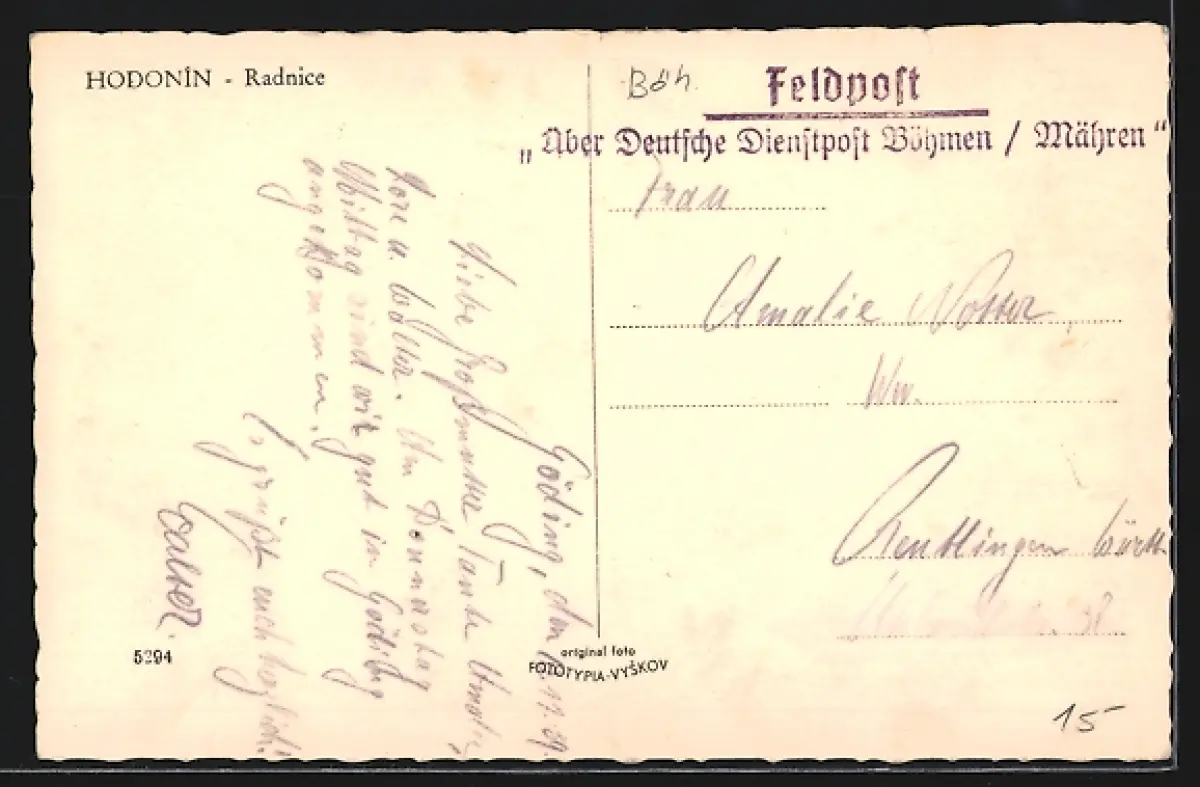 HODONÍN - Radnice
Böh.
Feldpost
„Über Deutsche Dienstpost Böhmen / Mähren“
Frau
Amalie
Ww.
Reutlingen Württ
38
Göding, den 11.39.
Liebe Großmutter Tante
u. Walter. Am Donnerstag
Mittag sind wir gut in Göding
angekommen.
Es grüßt euch herzlich
Walter.
5294
original foto
FOTOTYPIA-VYŠKOV
15